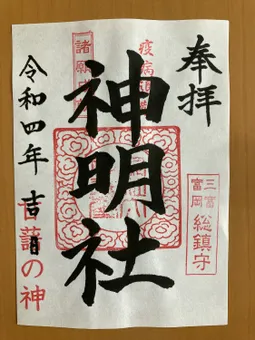 奉拝
三富
富岡
総鎮守
疫病
神明社
諸願
令和四年 吉日
甘藷の神